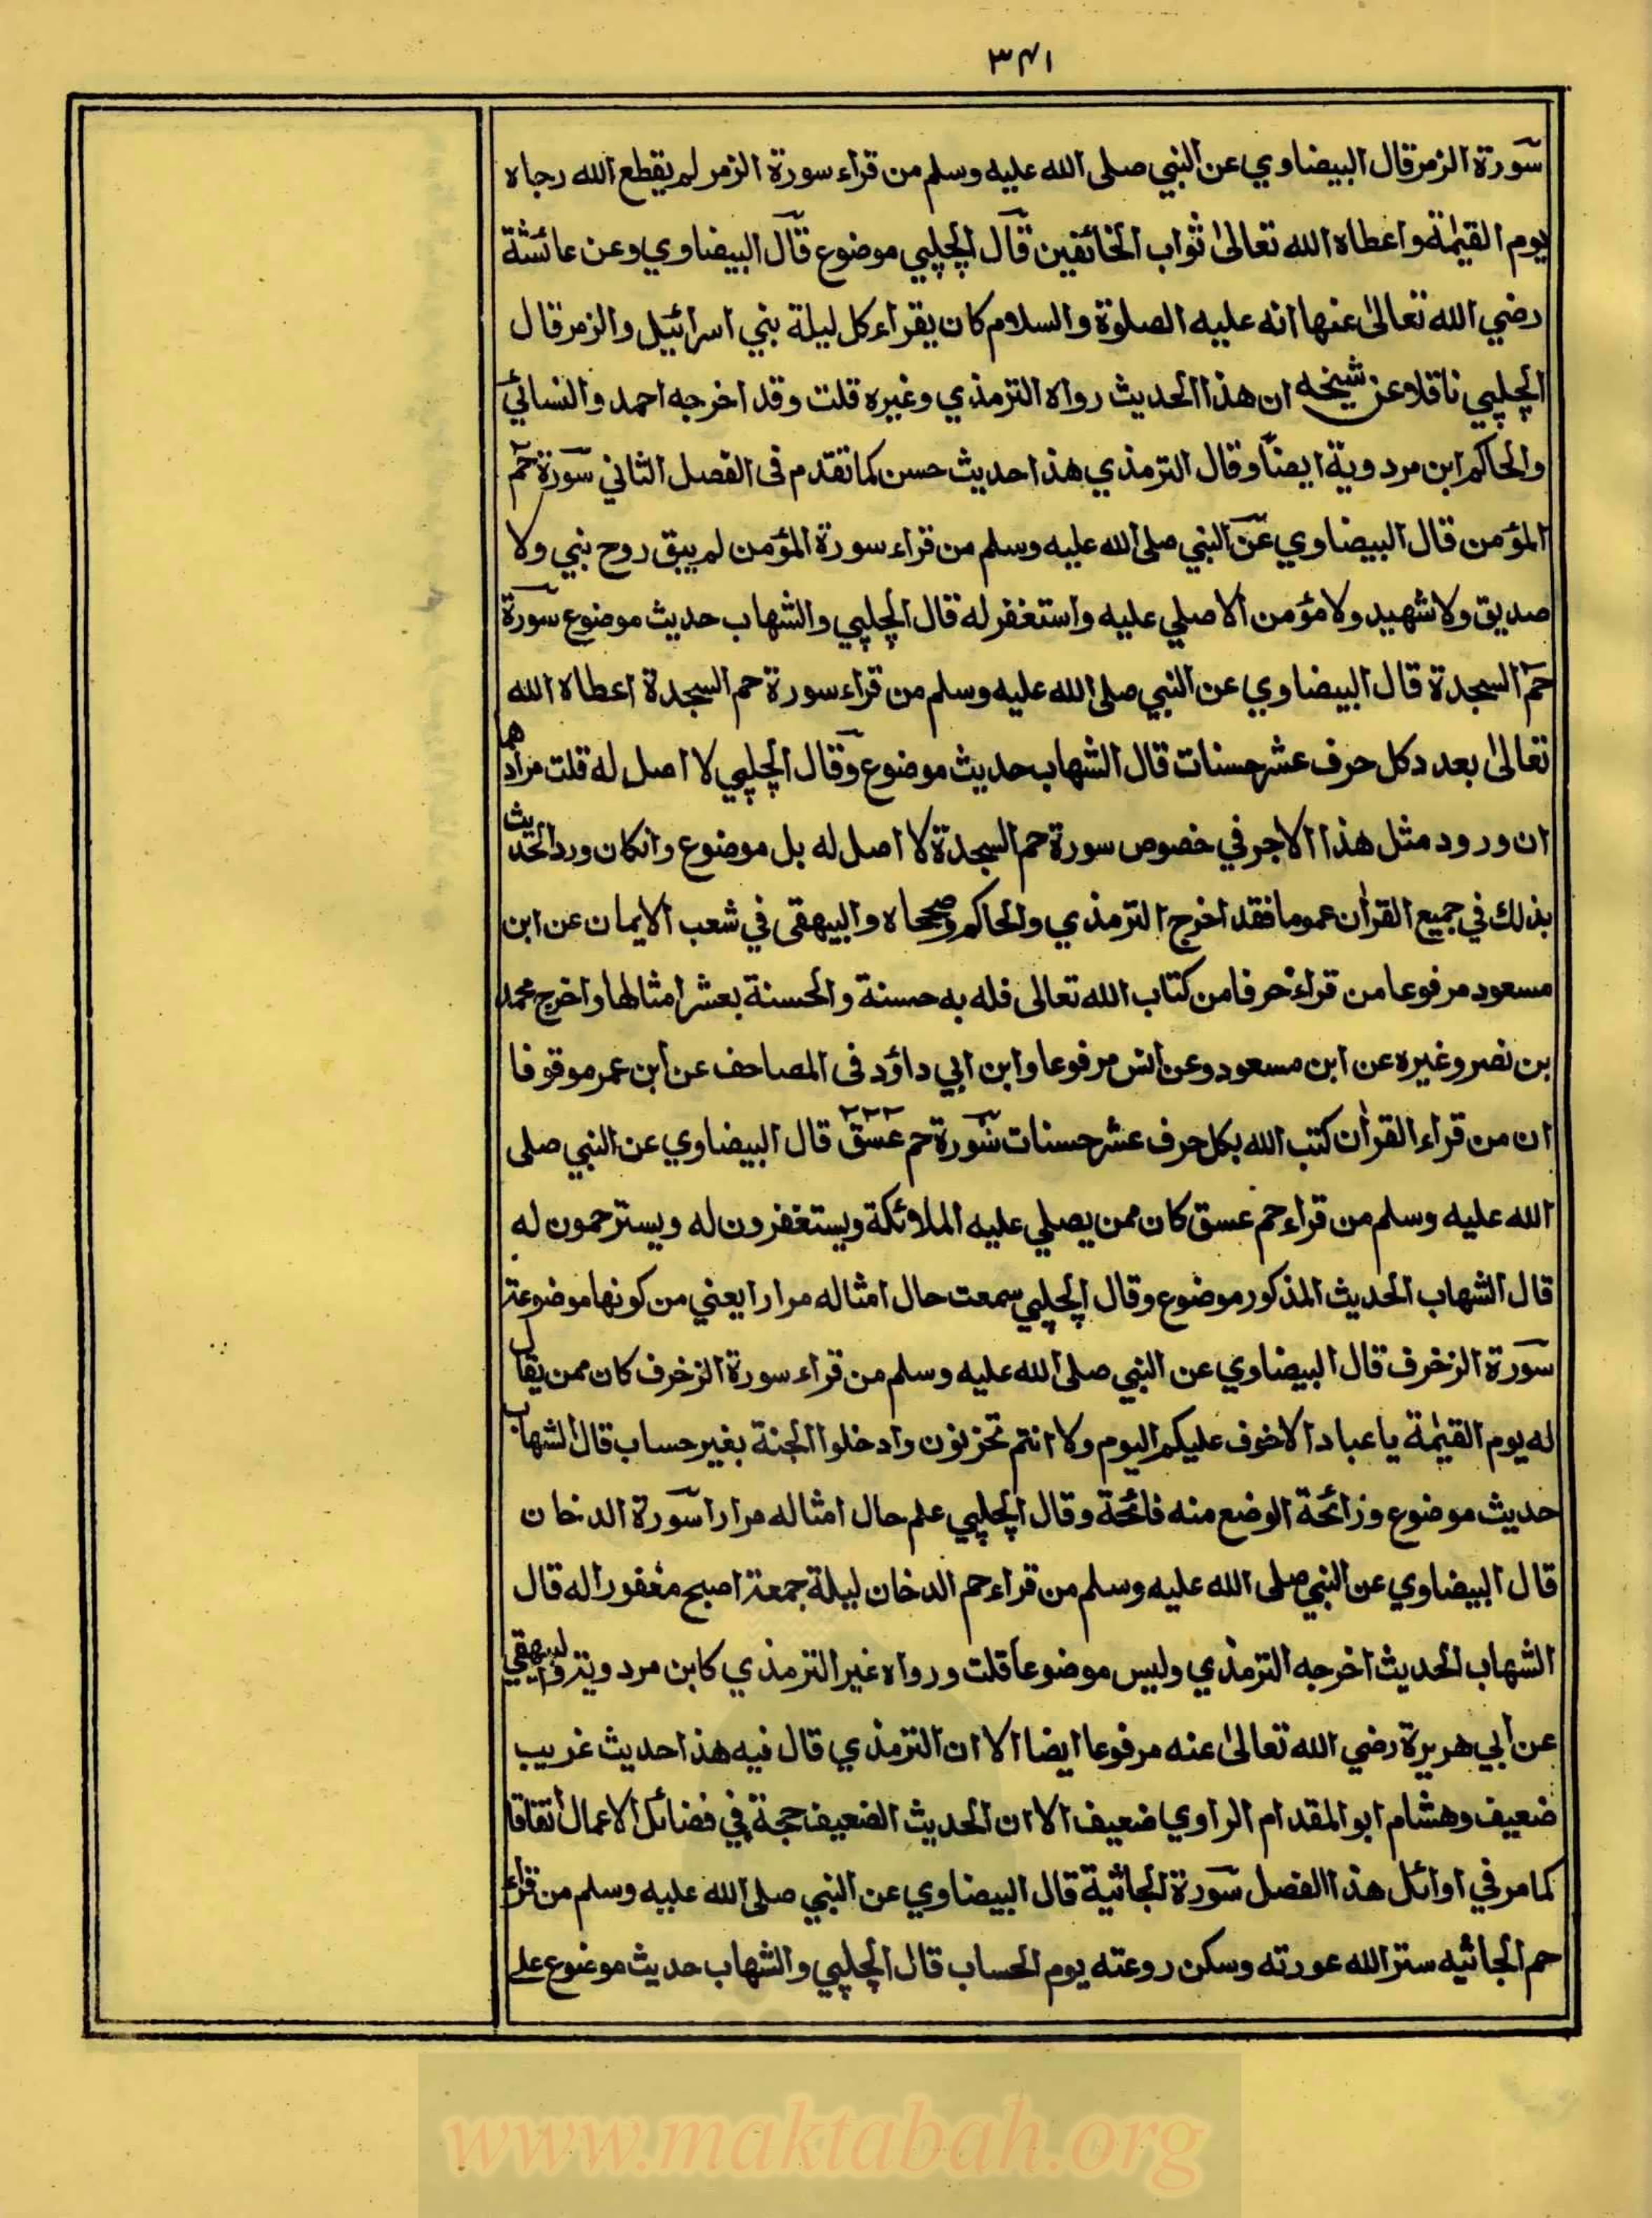 ٣٤١
سورة الزمر قال البيضاوي عن النبي صلى الله عليه وسلم من قراء سورة الزمر لم يقطع الله رجاه
يوم القيمة واعطاه الله تعالى ثواب الخائفين قال الچلپي موضوع قال البيضاوي وعن عائشة
رضي الله تعالى عنها انه عليه الصلوة والسلام كان يقراء كل ليلة بني اسرائيل والزمر قال
الچلپي ناقلا عن شيخه ان هذا الحديث رواه الترمذي وغيره قلت وقد اخرجه احمد والنسائي
والحاكم ابن مردوية ايضا وقال الترمذي هذا حديث حسن كما تقدم فى الفصل الثاني سورة حم
المؤمن قال البيضاوي عن النبي صلى الله عليه وسلم من قراء سورة المؤمن لم يبق روح نبي ولا
صديق ولا شهيد ولا مؤمن الا صلي عليه واستغفر له قال الچلپي والشهاب حديث موضوع سورة
حم السجدة قال البيضاوي عن النبي صلى الله عليه وسلم من قراء سورة حم السجدة اعطاه الله
تعالى بعدد كل حرف عشر حسنات قال الشهاب حديث موضوع وقال الچلپي لا اصل له قلت مرادهما
ان ورود مثل هذا الاجر في خصوص سورة حم السجدة لا اصل له بل موضوع وانكان ورد الحديث
بذلك في جميع القرأن عموما فقد اخرج الترمذي والحاكم وصححاه والبيهقى في شعب الايمان عن ابن
مسعود مرفوعا من قراء حرفا من كتاب الله تعالى فله به حسنة والحسنة بعشر امثالها واخرج محمد
بن نصر وغيره عن ابن مسعود وعن انس مرفوعا وابن ابي داؤد فى المصاحف عن ابن عمر موقوفا
ان من قراء القرأن كتب الله بكل حرف عشر حسنات سورة حم عسق قال البيضاوي عن النبي صلى
الله عليه وسلم من قراء حم عسق كان ممن يصلي عليه الملائكة ويستغفرون له ويسترحمون له
قال الشهاب الحديث المذكور موضوع وقال الچلپي سمعت حال امثاله مرارا يعني من كونها موضوعة
سورة الزخرف قال البيضاوي عن النبي صلى الله عليه وسلم من قراء سورة الزخرف كان ممن يقال
له يوم القيمة يا عباد الا خوف عليكم اليوم ولا انتم تحزنون وادخلوا الجنة بغير حساب قال الشهاب
حديث موضوع ورائحة الوضع منه فائحة وقال الچلپي علم حال امثاله مرارا سورة الدخان
قال البيضاوي عن النبي صلى الله عليه وسلم من قراء حم الدخان ليلة جمعة اصبح مغفورا له قال
الشهاب الحديث اخرجه الترمذي وليس موضوعا قلت ورواه غير الترمذي كابن مردوية والبيهقي
عن ابي هريرة رضي الله تعالى عنه مرفوعا ايضا الا ان الترمذي قال فيه هذا حديث غريب
ضعيف وهشام ابو المقدام الراوي ضعيف الا ان الحديث الضعيف حجة في فضائل الاعمال اتفاقا
كما مر في اوائل هذا الفصل سورة الجاثية قال البيضاوي عن النبي صلى الله عليه وسلم من قراء
حم الجاثيه ستر الله عورته وسكن روعته يوم الحساب قال الچلپي والشهاب حديث موضوع على
www.maktabah.org